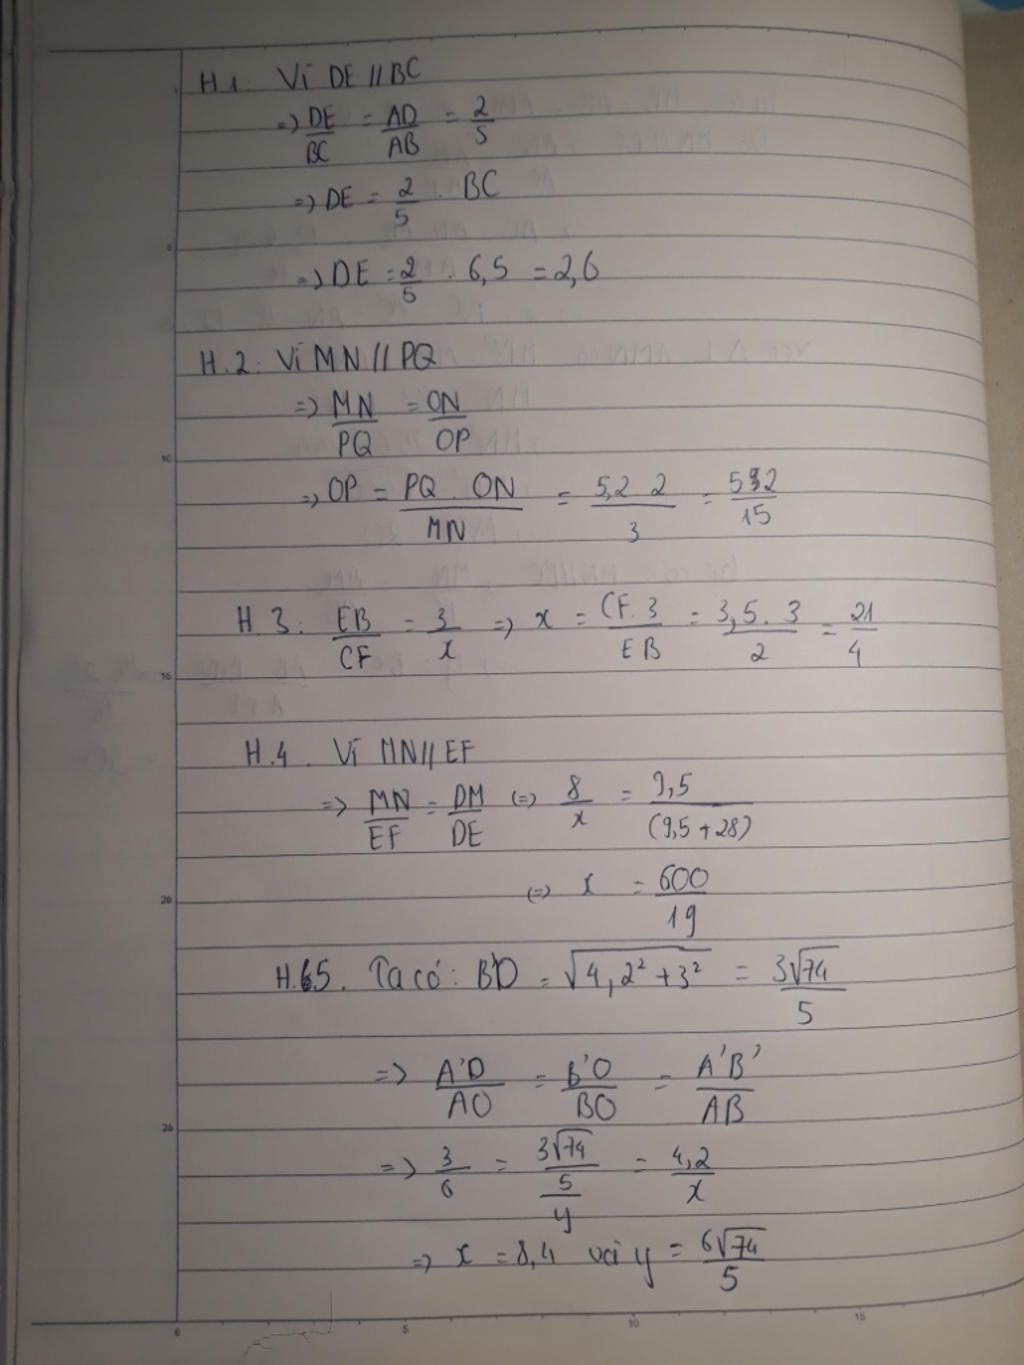 H1. Vì DE // BC
=> DE/BC = AD/AB = 2/5
=> DE = 2/5 . BC
=> DE = 2/5 . 6,5 = 2,6
H.2: Vì MN // PQ
=> MN/PQ = ON/OP
=> OP = PQ . ON/MN = 5,2 . 2/3 = 52/15
H.3: EB/CF = 3/x => x = CF.3/EB = 3,5.3/2 = 21/4
H.4. Vì MN // EF
=> MN/EF = DM/DE <=> 8/x = 9,5/(9,5+28)
<=> x = 600/19
H.5. Ta có: B'O = √(4,2² + 3²) = 3√74/5
=> A'O/AO = B'O/BO = A'B'/AB
=> 3/6 = (3√74/5)/y = 4,2/x
=> x = 8,4 và y = 6√74/5
5
10
15
20
25
0 5 10 15